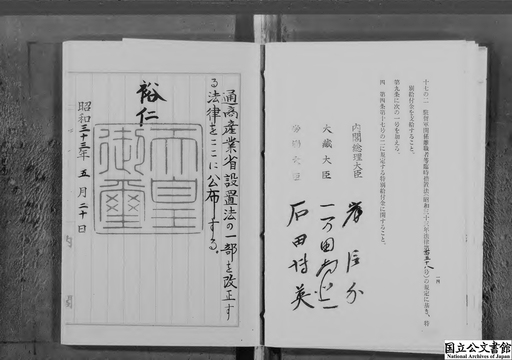 十七の二 駐留軍関係離職者等臨時措置法(昭和三十三年法律第百五十八号)の規定に基き、特
別給付金を支給すること。
第九条に次の一号を加える。
四 第四条第十七号の二に規定する特別給付金に関すること。
内閣総理大臣 岸信介
大蔵大臣 一万田尚登
労働大臣 石田博英
通商産業省設置法の一部を改正す
る法律をここに公布する。
裕仁
天皇
御璽
昭和三十三年五月二十日
国立公文書館
National Archives of Japan